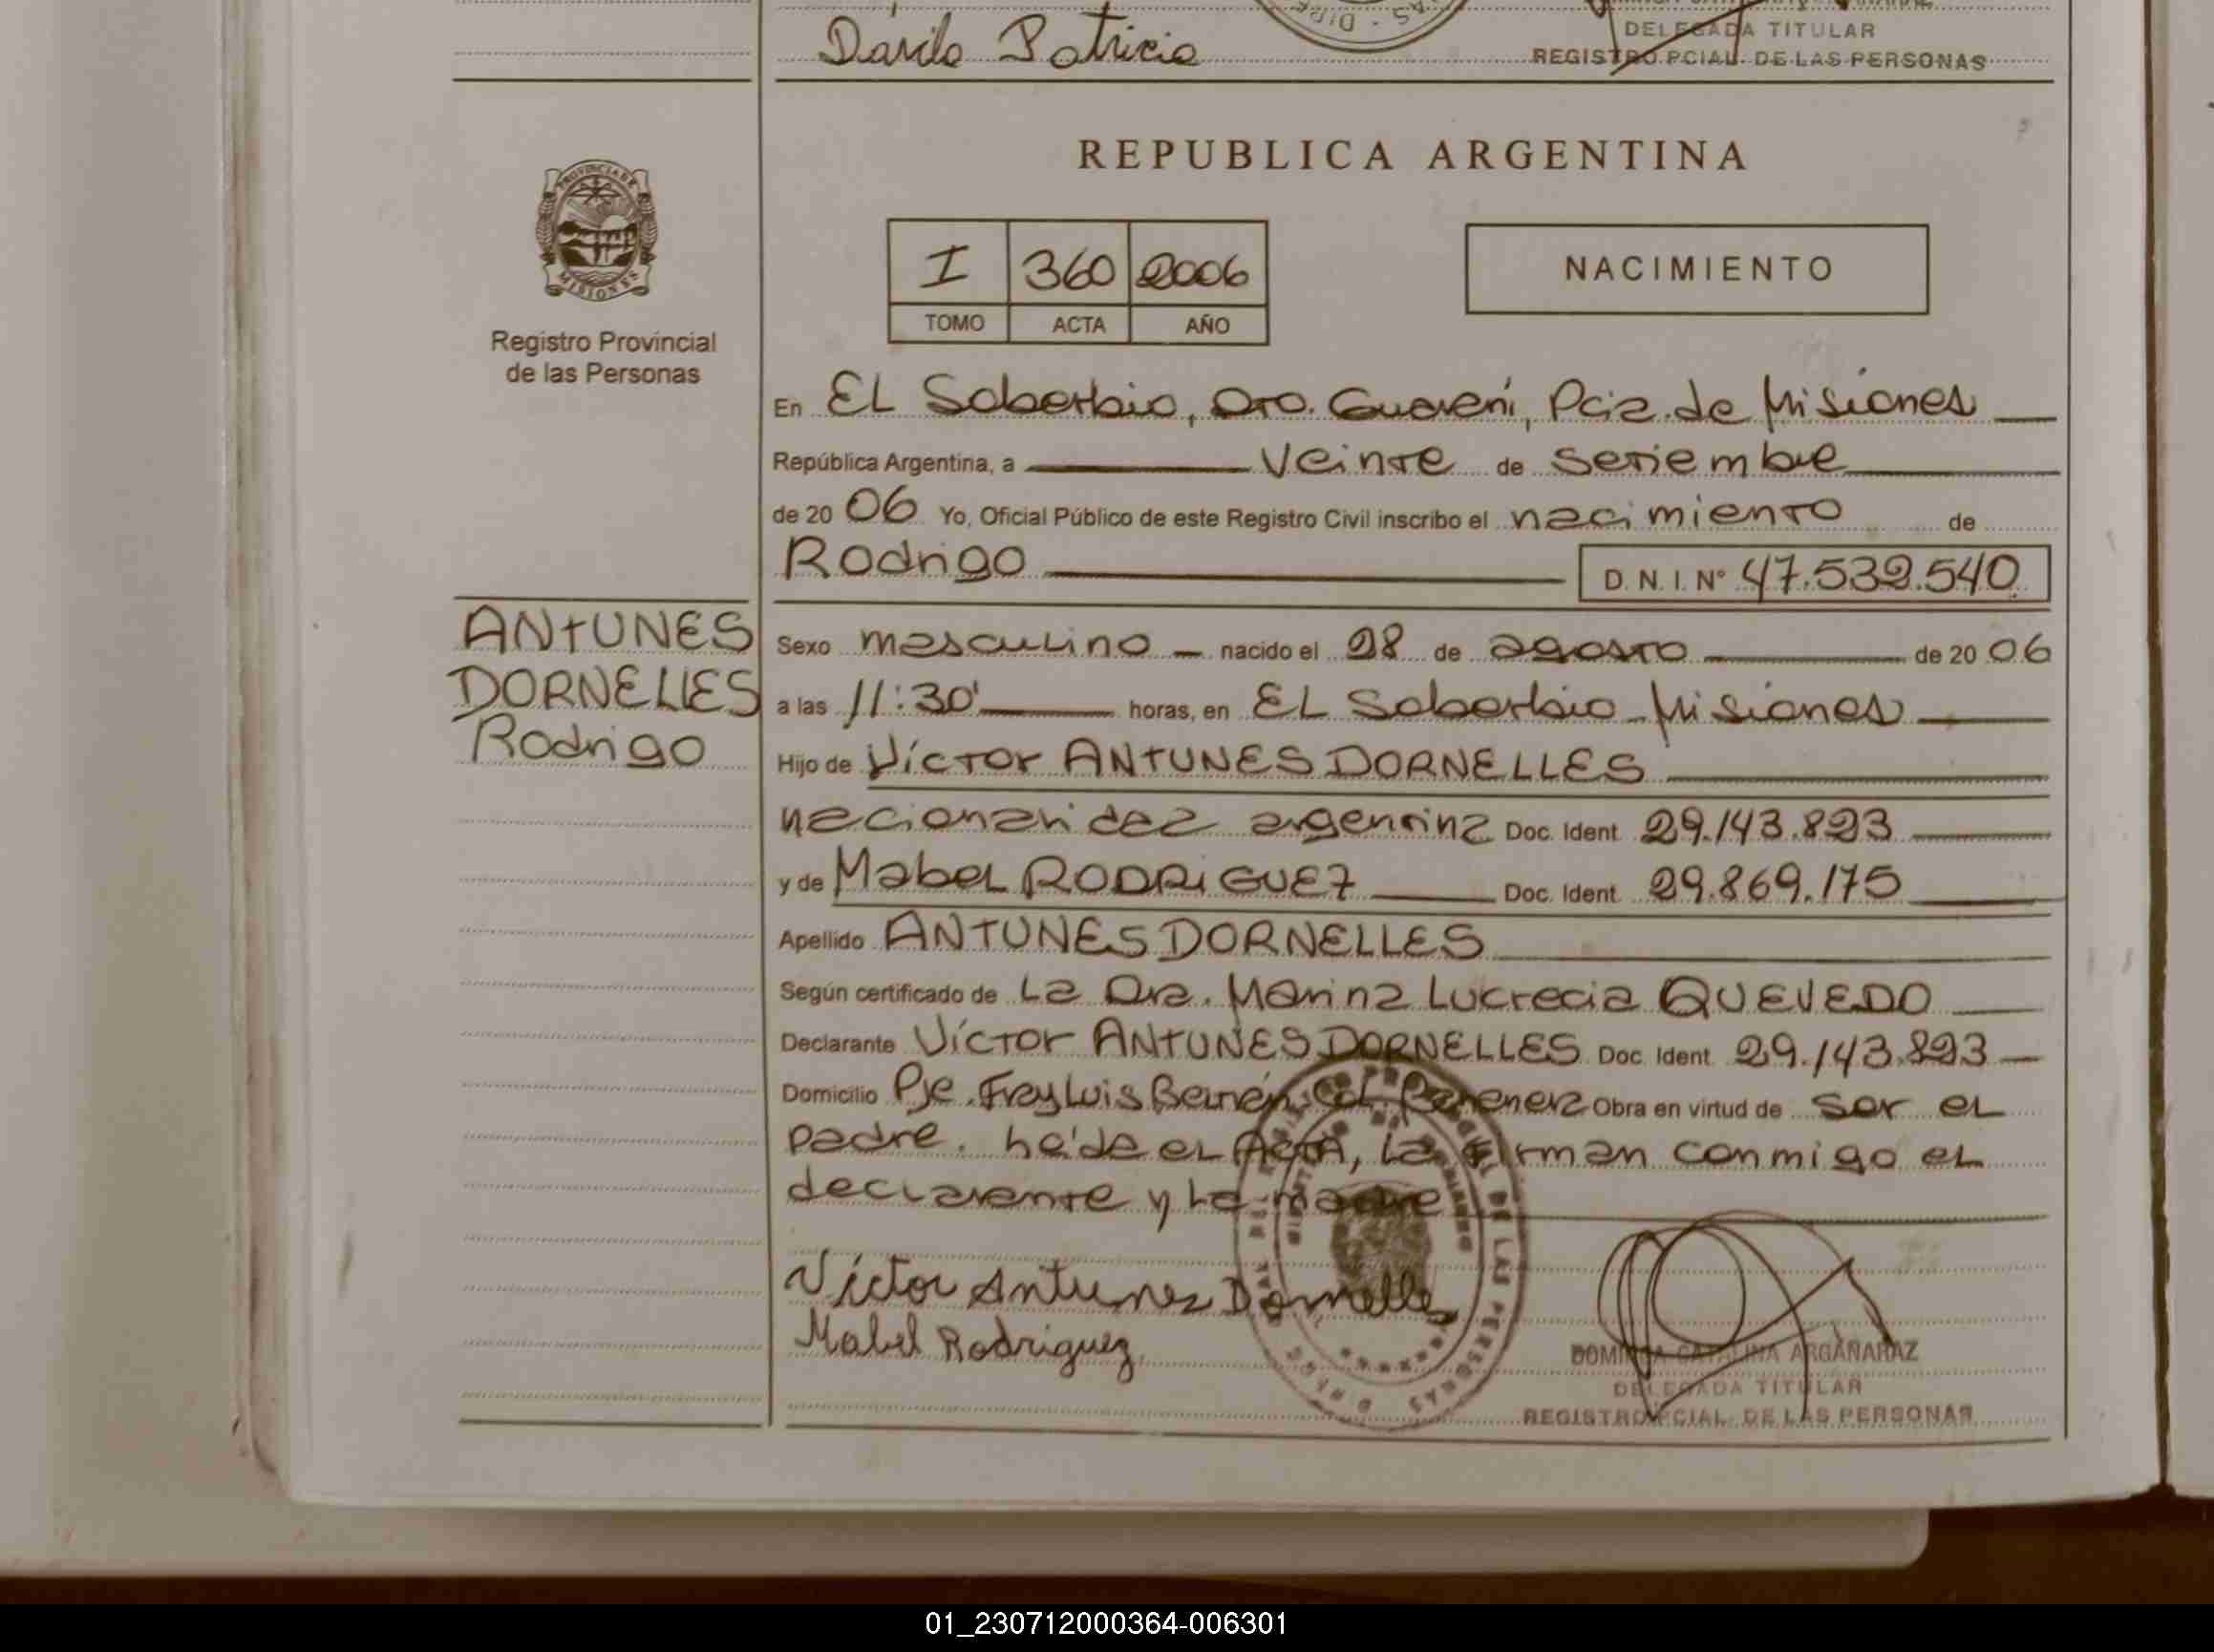 Davila Patricia
DELEGADA TITULAR
REGISTRO PCIAL. DE LAS PERSONAS
REPUBLICA ARGENTINA
PROVINCIA DE
MISIONES
Registro Provincial
de las Personas
I 360 2006
TOMO ACTA AÑO
NACIMIENTO
En EL Soberbio, Dto. Guaraní, Pcia. de Misiones
República Argentina, a veinte de setiembre
de 20 06 Yo, Oficial Público de este Registro Civil inscribo el nacimiento de
Rodrigo D. N. I. Nº 47.532.540
ANTUNES
DORNELLES
Rodrigo
Sexo masculino nacido el 28 de agosto de 20 06
a las 11:30' horas, en EL Soberbio Misiones
Hijo de Víctor ANTUNES DORNELLES
nacionalidad argentina Doc. Ident. 29.143.823
y de Mabel RODRIGUEZ Doc. Ident. 29.869.175
Apellido ANTUNES DORNELLES
Según certificado de La Dra. Marina Lucrecia QUEVEDO
Declarante Víctor ANTUNES DORNELLES Doc. Ident. 29.143.823
Domicilio Pje. Fray Luis Beltrán Obra en virtud de ser el
padre. heída el ACTA, la firman conmigo el
declarante y la madre
Víctor Antunes Dornelles
Mabel Rodriguez
DOMINGA CATALINA ARGAÑARAZ
DELEGADA TITULAR
REGISTRO PCIAL. DE LAS PERSONAS
01_230712000364-006301